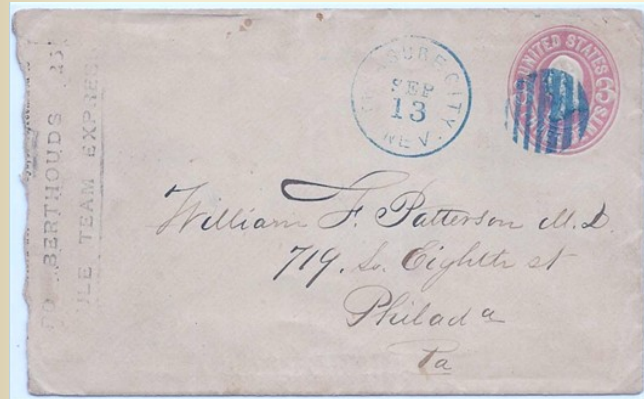 TO BERTHOUDS
TEAM EXPRES
SURE CITY.
SEP
13
NEV.
UNITED STATES
SIX
William F. Patterson M.D.
719. So. Eighth st
Philad a
Pa